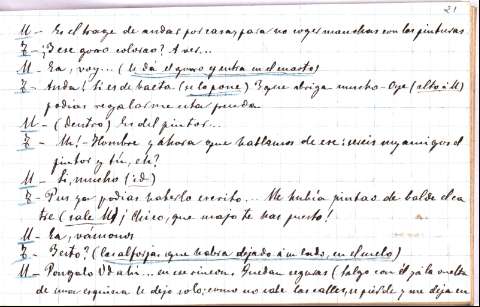 21
M - Es el trage de andar por casa, para no coger manchas con las pinturas
Z - ¿Y ese gorro colorao? A ver...
M - Ea, voy... (Le dá el gorro y entra en el cuarto)
Z - Anda! Si es de baeta (se lo pone) Y que abriga mucho - Oye (alto á M)
podias regalarme esta prenda
M - (dentro) Es del pintor...
Z - Ah! - Hombre y ahora que hablamos de ese: sois muy amigos el
pintor y tú, eh?
M - Si, mucho (id)
Z - Pus ya podias haberlo escrito... Me hubia pintao de balde el ca-
tre (sale M) ¡Chico, que majo te has puesto!
M - Ea, vámonos
Z - Y esto? (las alforjas que habia dejado á un lado, en el suelo)
M - Pongalo Vd ahi... en un rincon. Quedan seguras (Salgo con él, y á la vuelta
de una esquina le dejo solo; como no sabe las calles, se pierde y me deja en